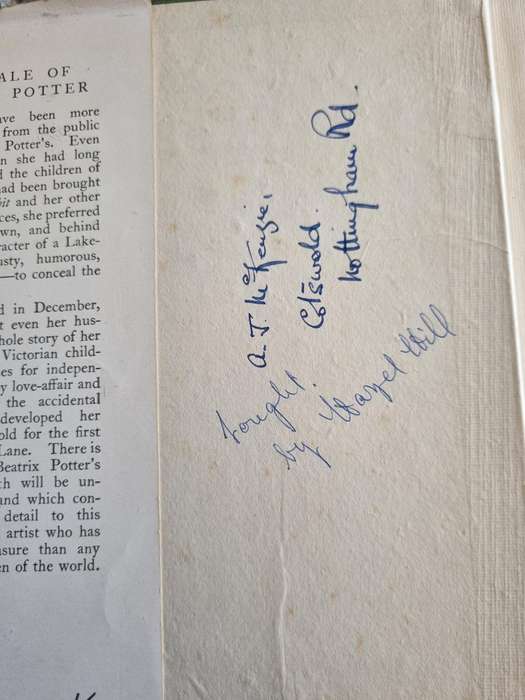 ALE OF
POTTER
ave been more
from the public
Potter's. Even
n she had long
d the children of
ad been brought
bit and her other
ces, she preferred
wn, and behind
racter of a Lake-
usty, humorous,
—to conceal the
d in December,
t even her hus-
hole story of her
Victorian child-
es for indepen-
y love-affair and
the accidental
developed her
old for the first
Lane. There is
Beatrix Potter's
ch will be un-
and which con-
detail to this
artist who has
asure than any
en of the world.
A. J. McKenzie,
Cotswold.
Nottingham Rd.
bought
by Hazel Hill